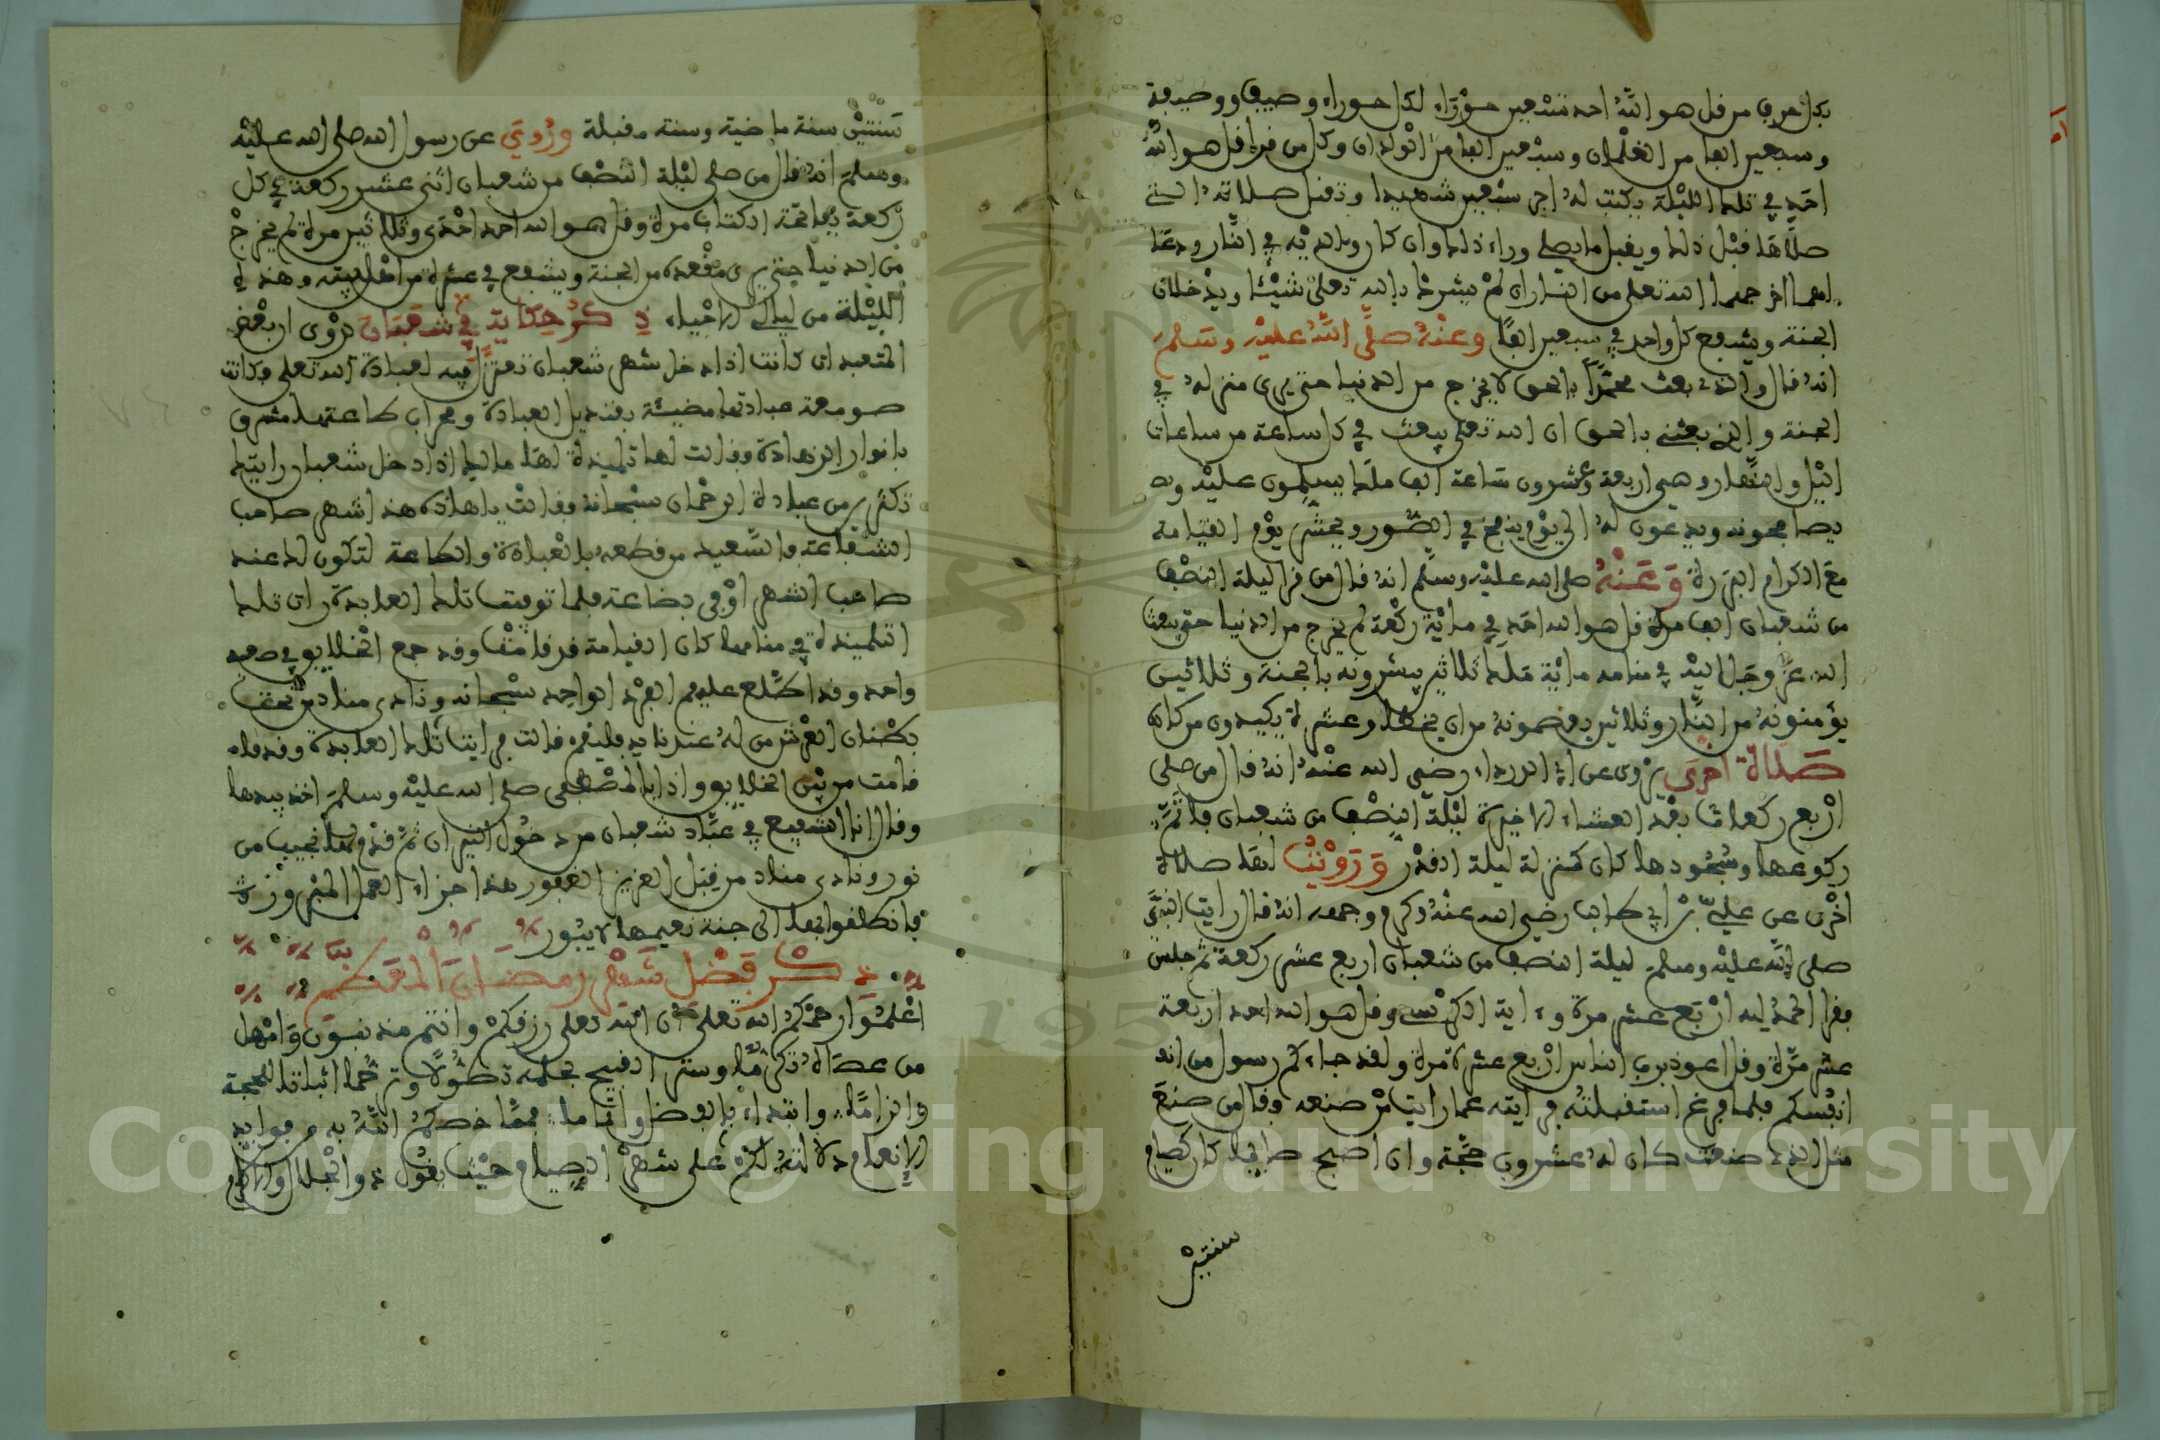 بكل حرف من قل هو الله احد سبعين حوراء لكل حوراء وصيف ووصيفة
وسبعين الفا من الغلمان وسبعين الفا من الولدان وكل من قرا قل هو الله
احد في تلك الليلة يكتب له اجر سبعين شهيدا وتقبل صلاته التي
صلاها قبل ذلك ويقبل ما يصلي وراء ذلك وان كان والديه في النار ودعا
لهما اخرجهما الله تعلى من النار ان لم يشركا بالله تعلى شيئا ويدخلان
الجنة ويشفع كل واحد في سبعين الفا وعنه صلى الله عليه وسلم
انه قال والذي بعث محمدا بالحق لا يخرج من الدنيا حتى يرى منزله في
الجنة والذي بعثني بالحق ان الله تعلى يبعث في كل ساعة من ساعات
اليل والنهار وهي اربعة وعشرون ساعة الف ملك يسلمون عليه و
يصافحونه ويدعون له الى يوم ينفخ في الصور ويحشر يوم القيامة
مع الكرام البررة وعنه صلى الله عليه وسلم انه قال من قرا ليلة النصف
من شعبان الف مرة قل هو الله احد في ماية ركعة لم يخرج من الدنيا حتى يبعث
الله عز وجل اليه في منامه ماية ملك ثلاثين يبشرونه بالجنة وثلاثين
يؤمنونه من النار وثلاثين يعصمونه من ان يخطا وعشرة يكيدون من كاده
صلاة اخرى يروى عن ابي الدرداء رضي الله عنه انه قال من صلى
اربع ركعات بعد العشاء الاخيرة ليلة النصف من شعبان فاتم
ركوعها وسجودها كان كمنزلة ليلة القدر وروينا ايضا صلاة
اخرى عن علي بن ابي طالب رضي الله عنه وكرم وجهه انه قال رايت النبي
صلى الله عليه وسلم ليلة النصف من شعبان اربع عشر ركعة ثم جلس
فقرا الحمد لله اربع عشر مرة و اية الكرسي وقل هو الله احد اربعة
عشر مرة وقل اعوذ برب الناس اربع عشرة مرة ولقد جاءكم رسول من انفـ
انفسكم فلما فرغ استقبلته فرايته عما رايت من صنعه وقال من صنع
مثل الذي صنعت كان له عشرون حجة وان اصبح صايما كان كصيام
سنتين
سنتين سنة ماضية وسنة مقبلة وروي عن رسول الله صلى الله عليه
وسلم انه قال من صلى ليلة النصف من شعبان اثنى عشر ركعة في كل
ركعة بفاتحة الكتاب مرة وقل هو الله احد احدى وثلاثين مرة لم يخرج
من الدنيا حتى يرى مقعده من الجنة ويشفع في عشرة من اهل بيته وهذه
الليلة من ليالي الاحياء ذكر حكاية في شعبان روي ان بعض
المتعبدات كانت اذا دخل شهر شعبان تعتزل فيه لعبادة الله تعلى وكانت
صومعة عبادتها مضيئة بقنديل العبادة ومحراب طاعتها مشرق
بانوار الزهادة فقالت لها تلميذة لها مالك اذا دخل شعبان رايتك
تكثرين من عبادة الرحمان سبحانه فقالت يا هاذه هذا شهر صاحب
الشفاعة فالسعيد من قطعه بالعبادة والطاعة لتكون له عند
صاحب الشهر اوفى بضاعة فلما توفيت تلك العابدة رات تلك
التلميذة في منامها كان القيامة قد قامت وقد جمع الخلايق في صعيد
واحد وقد اطلع عليهم الفرد الواحد سبحانه ونادى مناد من تحت
بطنان العرش من له عندنا يد فليقم قالت فرايت تلك العابدة وقد
قامت من بين الخلايق واذا بالمصطفى صلى الله عليه وسلم اخذ بيدها
وقال انا الشفيع في عباد شعبان من دخول النيران ثم قدم لها نجيب من
نور ونادى مناد من قبل العزيز الغفور هذا جزاء العمل المبرور
فانطلقوا بها الى جنة نعيمها لا يبور
ذكر فضل شهر رمضان المعظم
اعلموا رحمكم الله تعلى ان الله تعلى رزقكم وانتم مذنبون وامهل
من عصاه تكرما وستر القبيح بحلمه تطولا وترحما اثباتا للحجة
والزاما وابتداء بالفضل واتماما فمما خصكم الله به من فوايد
الانعام دلالته لكم على شهر الصيام حيث يقول ذو الجلال والاكرام